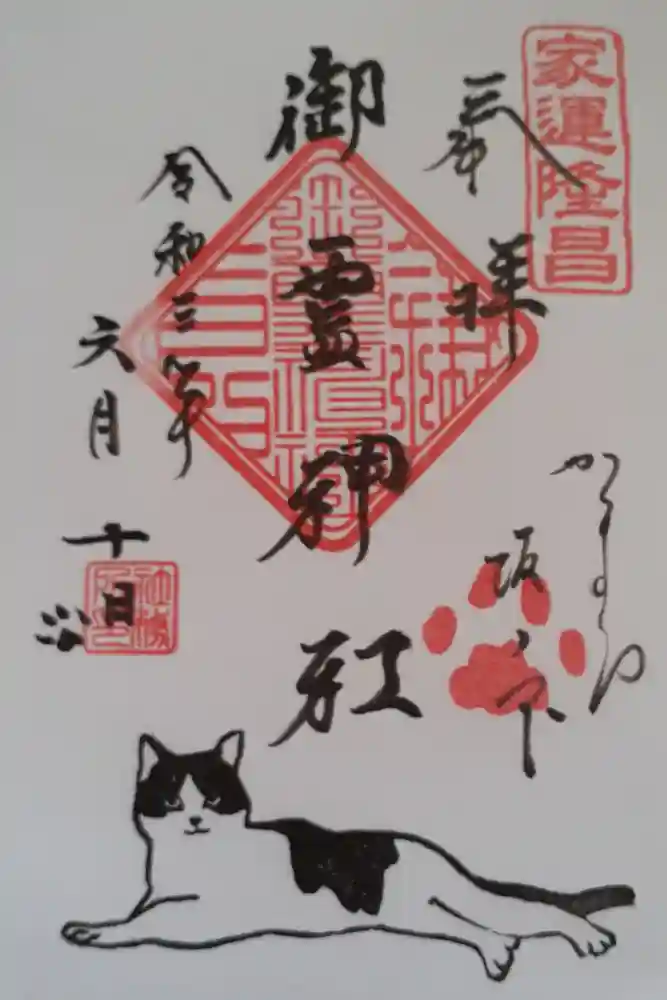 家運隆昌
奉拝
かまくら
坂ノ下
御霊神社
令和三年
六月
十日